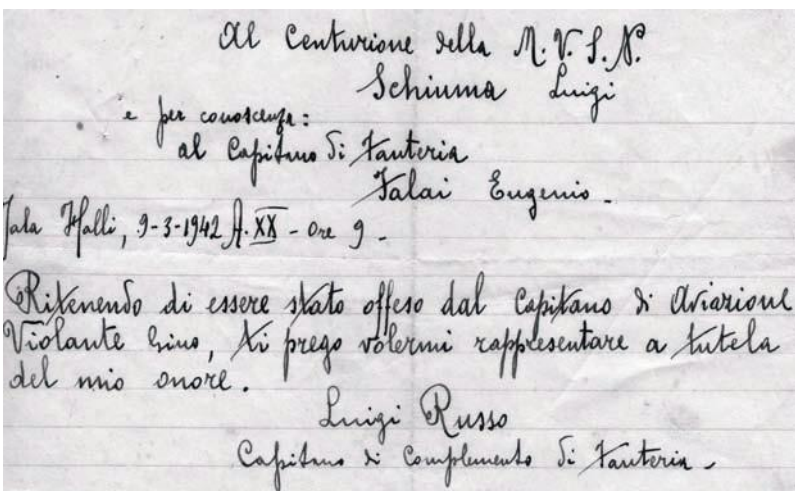 Al Centurione della M.V.S.N.
Schiuma Luigi
e per conoscenza:
al Capitano di Fanteria
Falai Eugenio -
Jala Halli, 9-3-1942 A. XX - Ore 9 -
Ritenendo di essere stato offeso dal Capitano di Aviazione
Violante Gino, ti prego volermi rappresentare a tutela
del mio onore.
Luigi Russo
Capitano di Complemento di Fanteria -